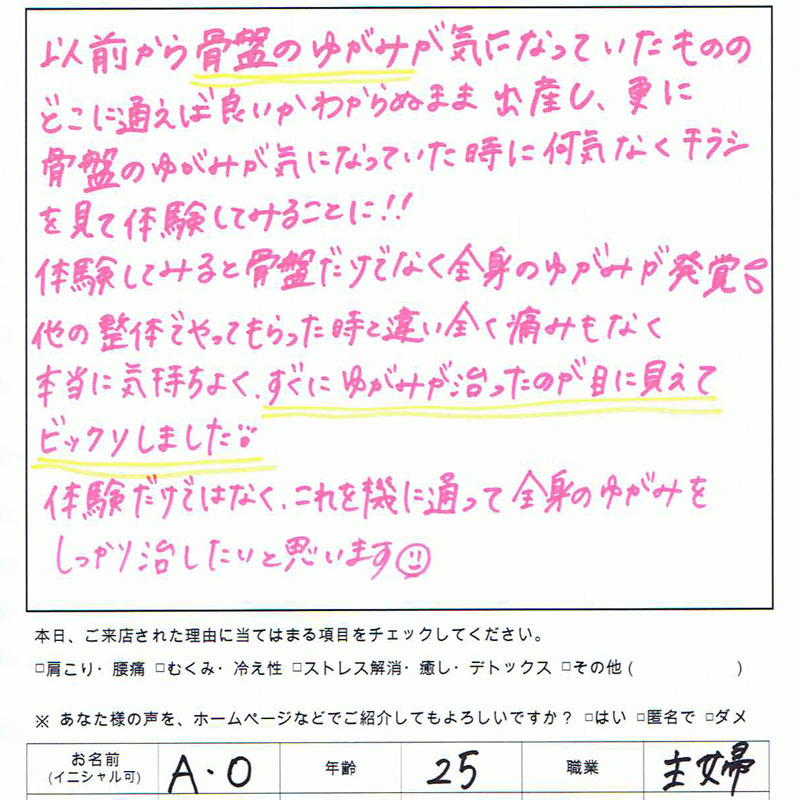 以前から骨盤のゆがみが気になっていたものの
どこに通えば良いかわからぬまま出産し、更に
骨盤のゆがみが気になっていた時に何気なくチラシ
を見て体験してみることに!!
体験してみると骨盤だけでなく全身のゆがみが発覚
他の整体でやってもらった時と違い全く痛みもなく
本当に気持ちよく、すぐにゆがみが治ったのが目に見えて
ビックリしました
体験だけではなく、これを機に通って全身のゆがみを
しっかり治したいと思います
本日、ご来店された理由に当てはまる項目をチェックしてください。
□肩こり・腰痛 □むくみ・冷え性 □ストレス解消・癒し・デトックス □その他( )
※ あなた様の声を、ホームページなどでご紹介してもよろしいですか? □はい □匿名で □ダメ
お名前 A・O 年齢 25 職業 主婦
(イニシャル可)